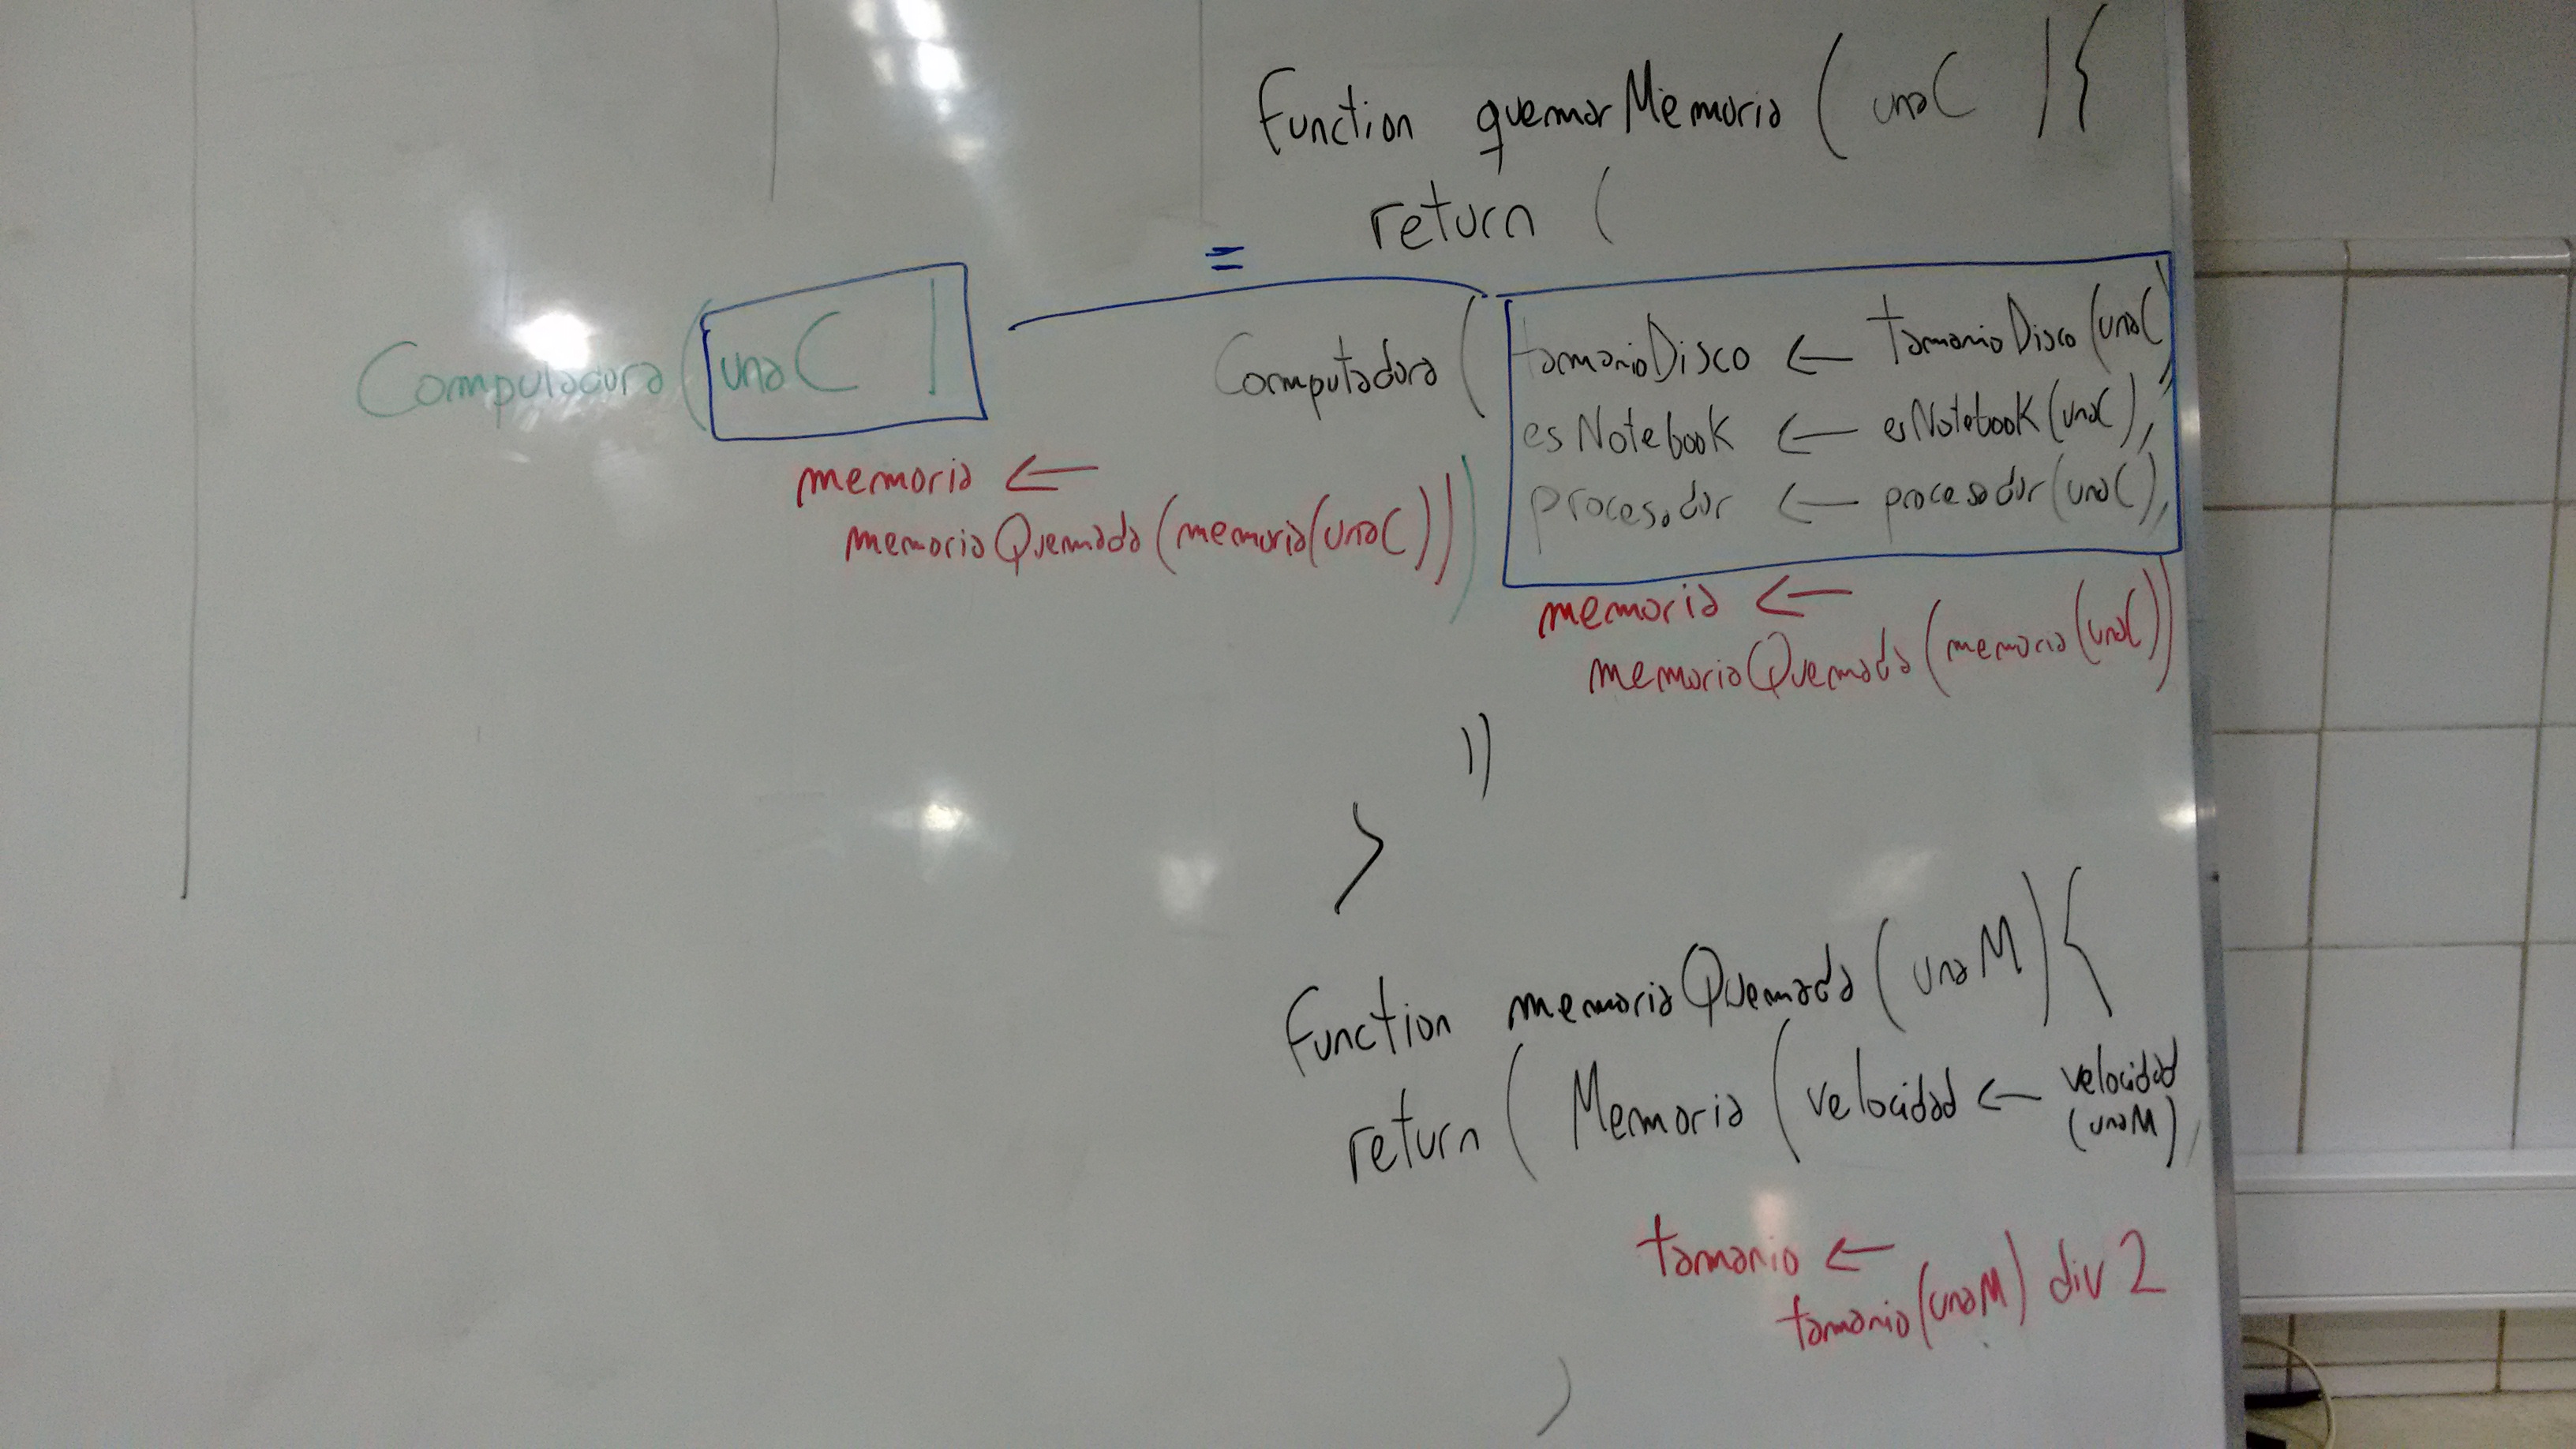 Function quemarMemoria ( unaC ) {
return (
=
Computadora ( unaC |
memoria ←
memoriaQuemada (memoria(unaC)) )
Computadora ( tamanioDisco ← tamanioDisco (unaC),
esNotebook ← esNotebook (unaC),
procesador ← procesador (unaC),
memoria ←
memoriaQuemada (memoria (unaC))
))
}
Function memoriaQuemada (unaM) {
return ( Memoria ( velocidad ← velocidad
(unaM),
tamanio ←
tamanio (unaM) div 2
)